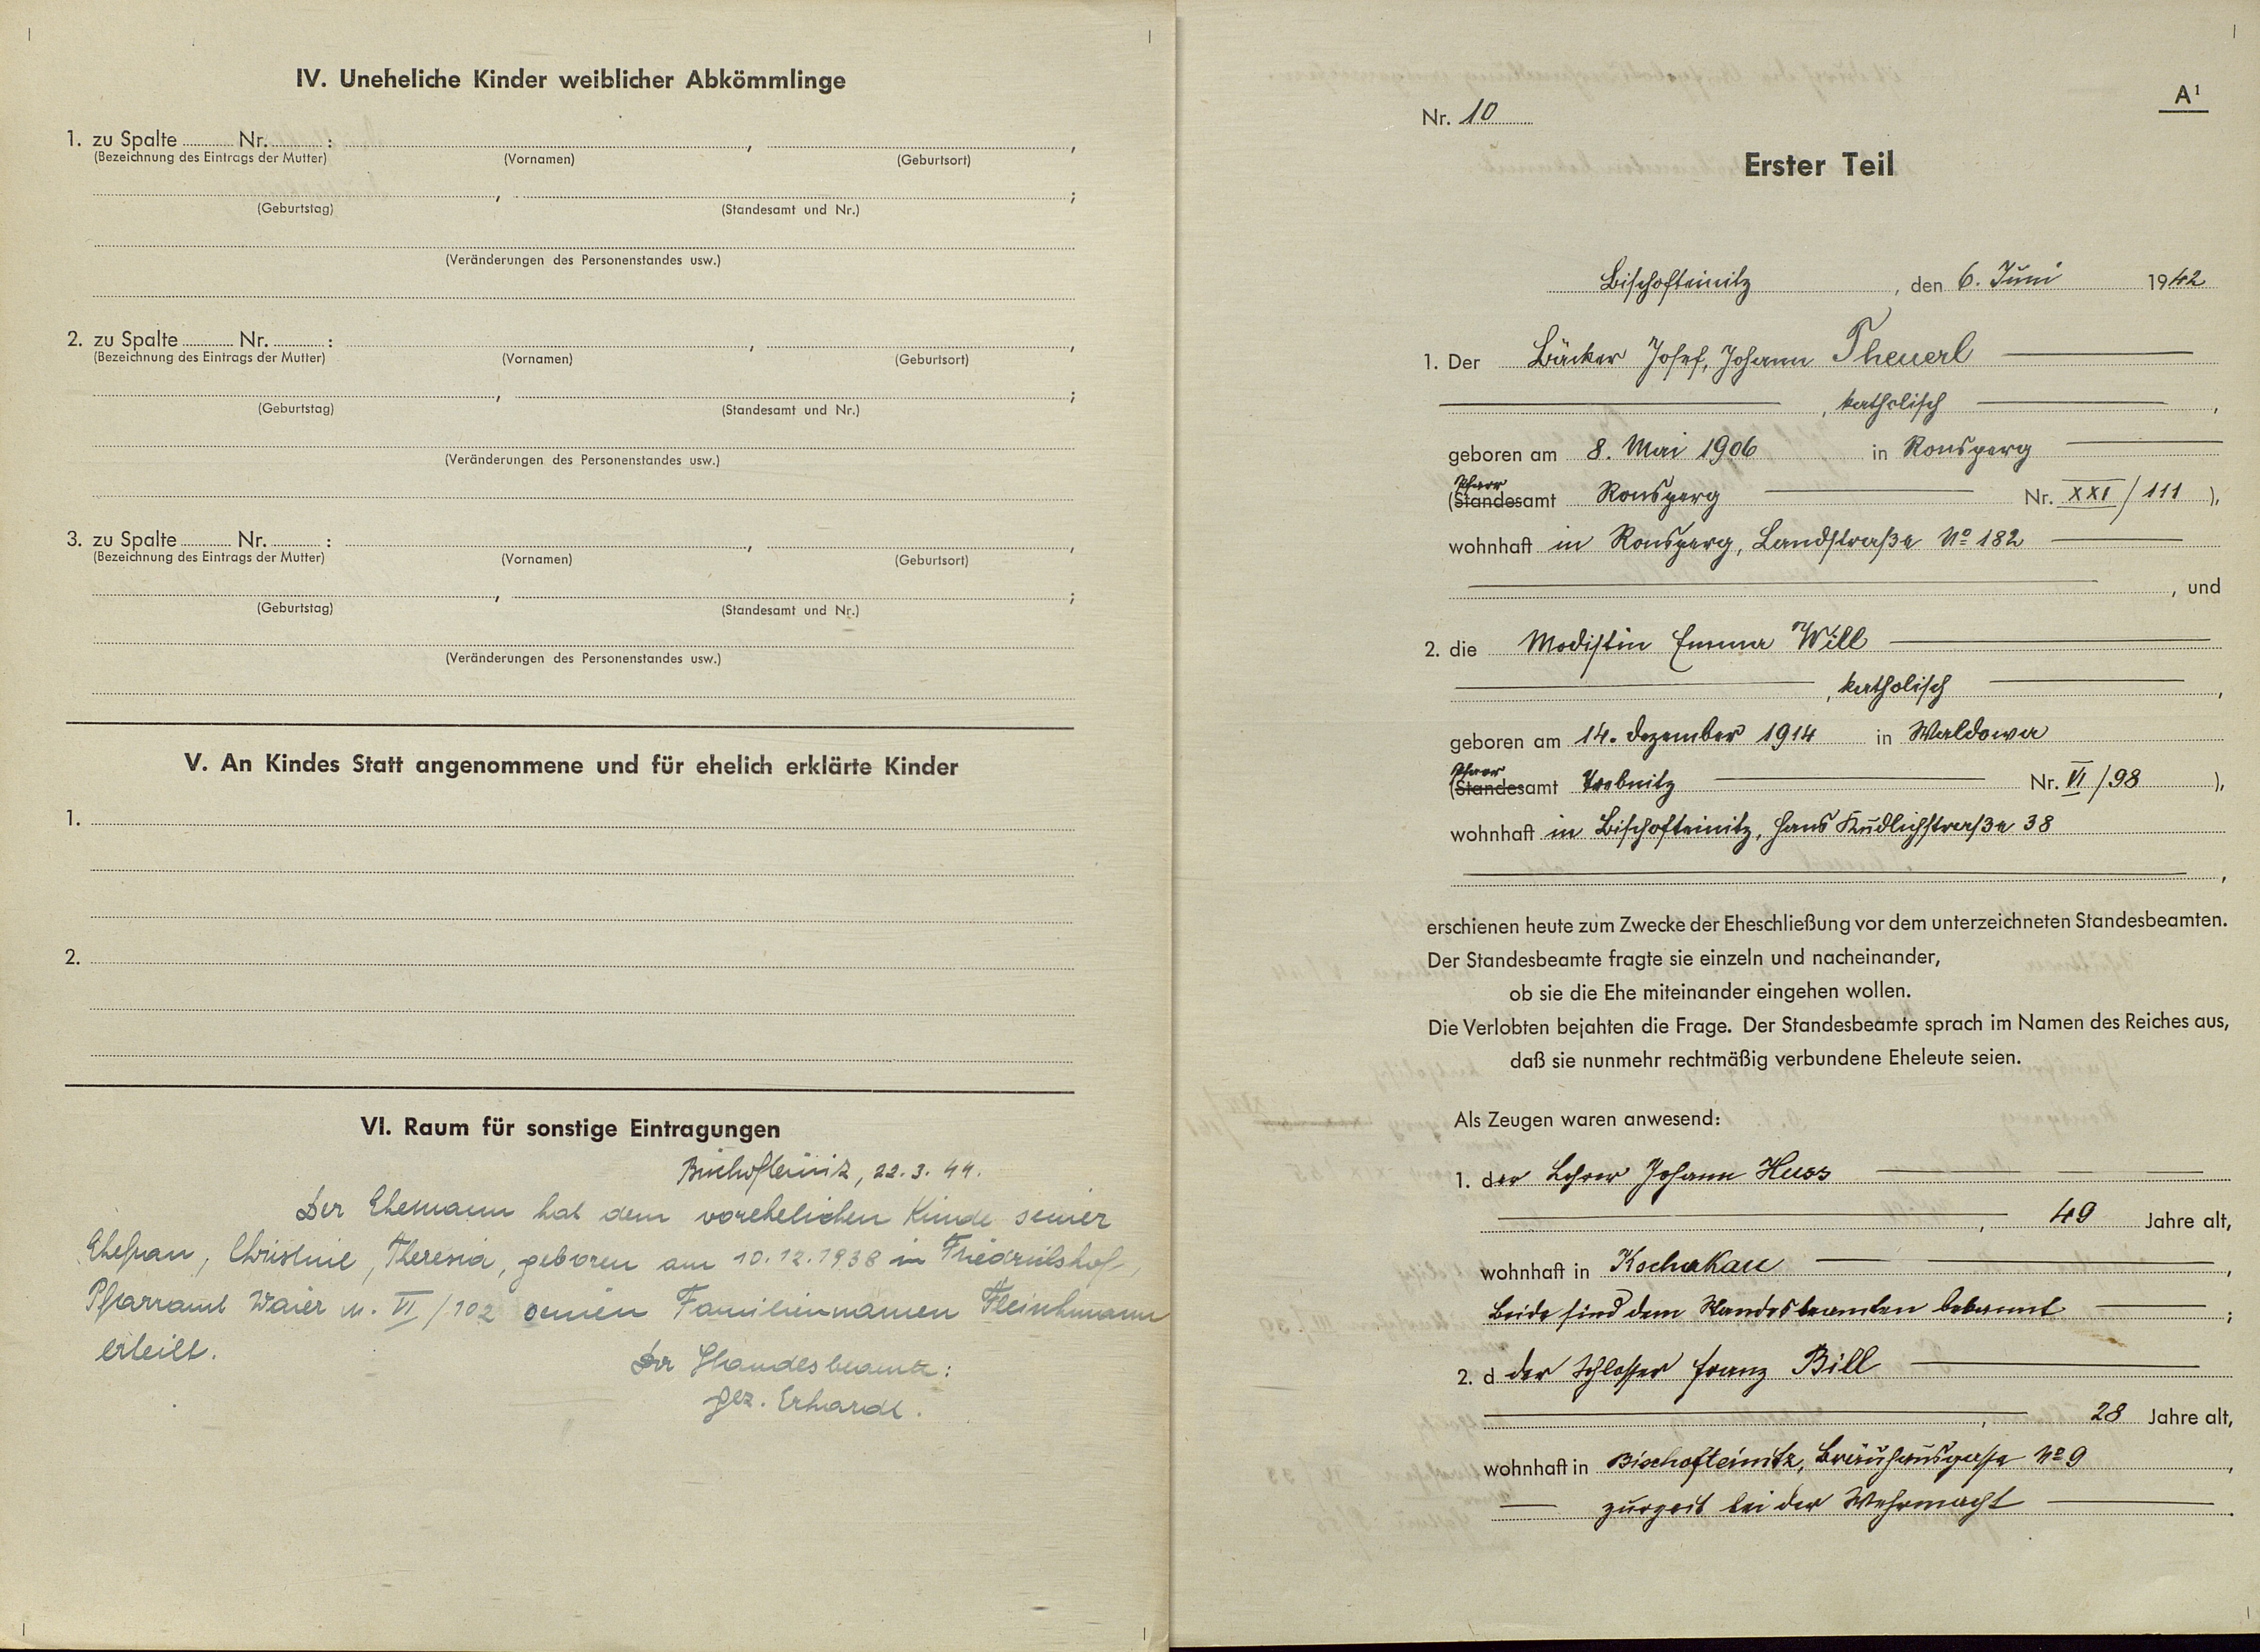 IV. Uneheliche Kinder weiblicher Abkömmlinge
1. zu Spalte Nr. : , ,
(Bezeichnung des Eintrags der Mutter) (Vornamen) (Geburtsort)
, ;
(Geburtstag) (Standesamt und Nr.)
(Veränderungen des Personenstandes usw.)
2. zu Spalte Nr. : , ,
(Bezeichnung des Eintrags der Mutter) (Vornamen) (Geburtsort)
, ;
(Geburtstag) (Standesamt und Nr.)
(Veränderungen des Personenstandes usw.)
3. zu Spalte Nr. : , ,
(Bezeichnung des Eintrags der Mutter) (Vornamen) (Geburtsort)
, ;
(Geburtstag) (Standesamt und Nr.)
(Veränderungen des Personenstandes usw.)
V. An Kindes Statt angenommene und für ehelich erklärte Kinder
1.
2.
VI. Raum für sonstige Eintragungen
Bischofteinitz, 22.3.44.
Der Ehemann hat dem vorehelichen Kinde seiner
Ehefrau, Christine, Theresia, geboren am 10.12.1938 in Friedrichshof,
Pfarramt Waier n. VI/102 seinen Familiennamen Fleischmann
erteilt.
Der Standesbeamte:
gez. Erhardt.
A1
Nr. 10
Erster Teil
Bischofteinitz, den 6. Juni 1942
1. Der Bäcker Josef, Johann Theuerl
, katholisch ,
geboren am 8. Mai 1906 in Ronsperg
Pfarr
(Standesamt Ronsperg Nr. XXI/111 ),
wohnhaft in Ronsperg, Landstraße No 182
, und
2. die Modistin Emma Will
, katholisch ,
geboren am 14. Dezember 1914 in Waldowa
Pfarr
(Standesamt Trebnitz Nr. VI/98 ),
wohnhaft in Bischofteinitz, Hans Kudlichstraße 38
,
erschienen heute zum Zwecke der Eheschließung vor dem unterzeichneten Standesbeamten.
Der Standesbeamte fragte sie einzeln und nacheinander,
ob sie die Ehe miteinander eingehen wollen.
Die Verlobten bejahten die Frage. Der Standesbeamte sprach im Namen des Reiches aus,
daß sie nunmehr rechtmäßig verbundene Eheleute seien.
Als Zeugen waren anwesend:
1. der Lehrer Johann Huss
, 49 Jahre alt,
wohnhaft in Kschakau ,
Beide sind dem Standesbeamten bekannt ;
2. d der Schlosser Franz Bill
, 28 Jahre alt,
wohnhaft in Bischofteinitz, Bräuhausgasse No 9 ,
zurzeit bei der Wehrmacht .